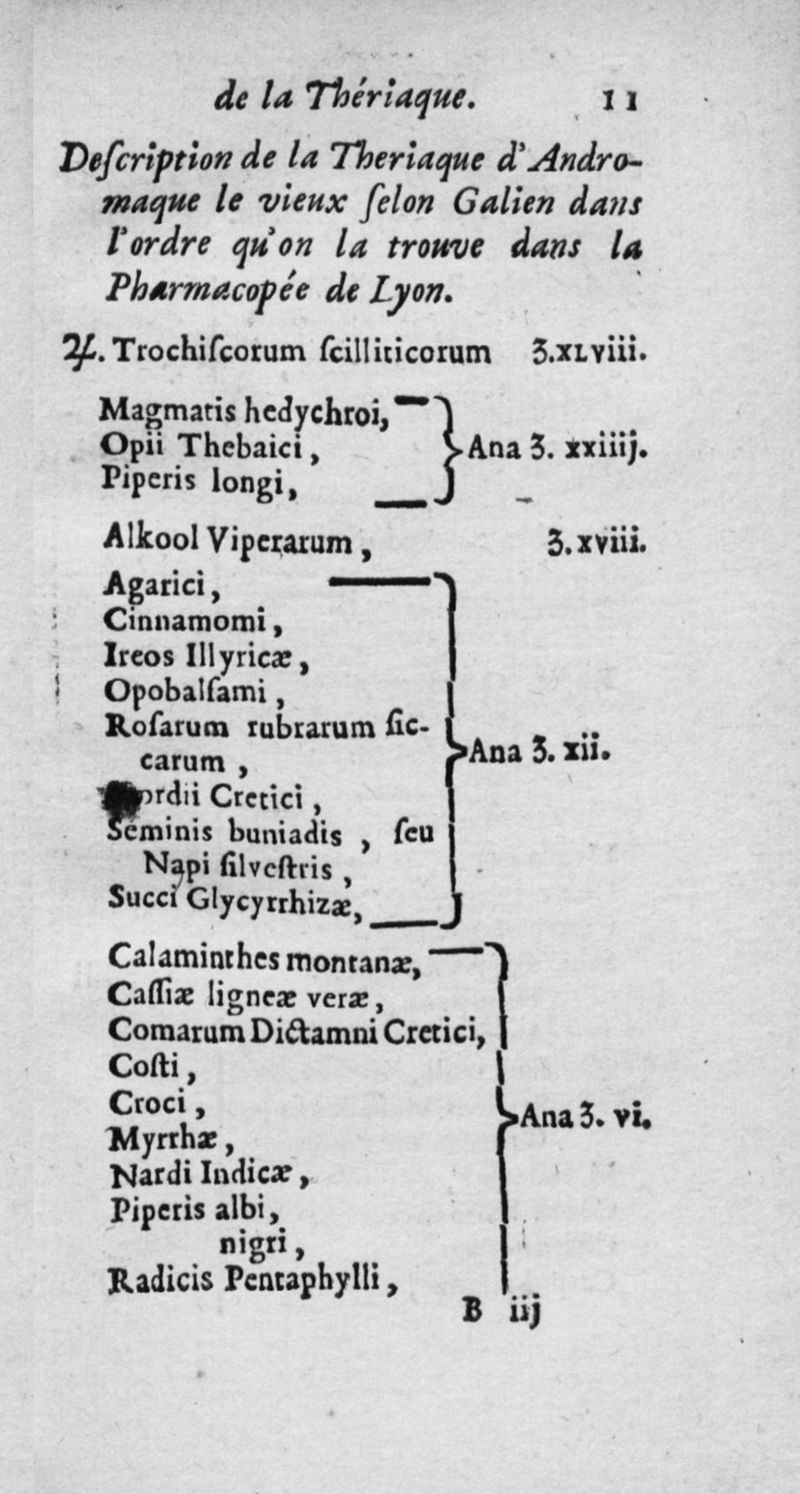 de la Thériaque. 11
Deſcription de la Theriaque d'Andro-
maque le vieux ſelon Galien dans
l'ordre qu'on la trouve dans la
Pharmacopée de Lyon.
♃. Trochiſcorum ſcilliticorum ʒ.xlviii.
Magmatis hedychroi,
Opii Thebaici, Ana ʒ. xxiiij.
Piperis longi,
Alkool Viperarum, ʒ.xviii.
Agarici,
Cinnamomi,
Ireos Illyricæ,
Opobalſami,
Roſarum rubrarum ſic-
carum, Ana ʒ. xii.
Cretici,
Seminis buniadis, ſeu
Napi ſilveſtris,
Succi Glycyrrhizæ,
Calaminthes montanæ,
Caſſiæ ligneæ veræ,
Comarum Dictamni Cretici,
Coſti,
Croci, Ana ʒ. vi.
Myrrhæ,
Nardi Indicæ,
Piperis albi,
nigri,
Radicis Pentaphylli,
B iij